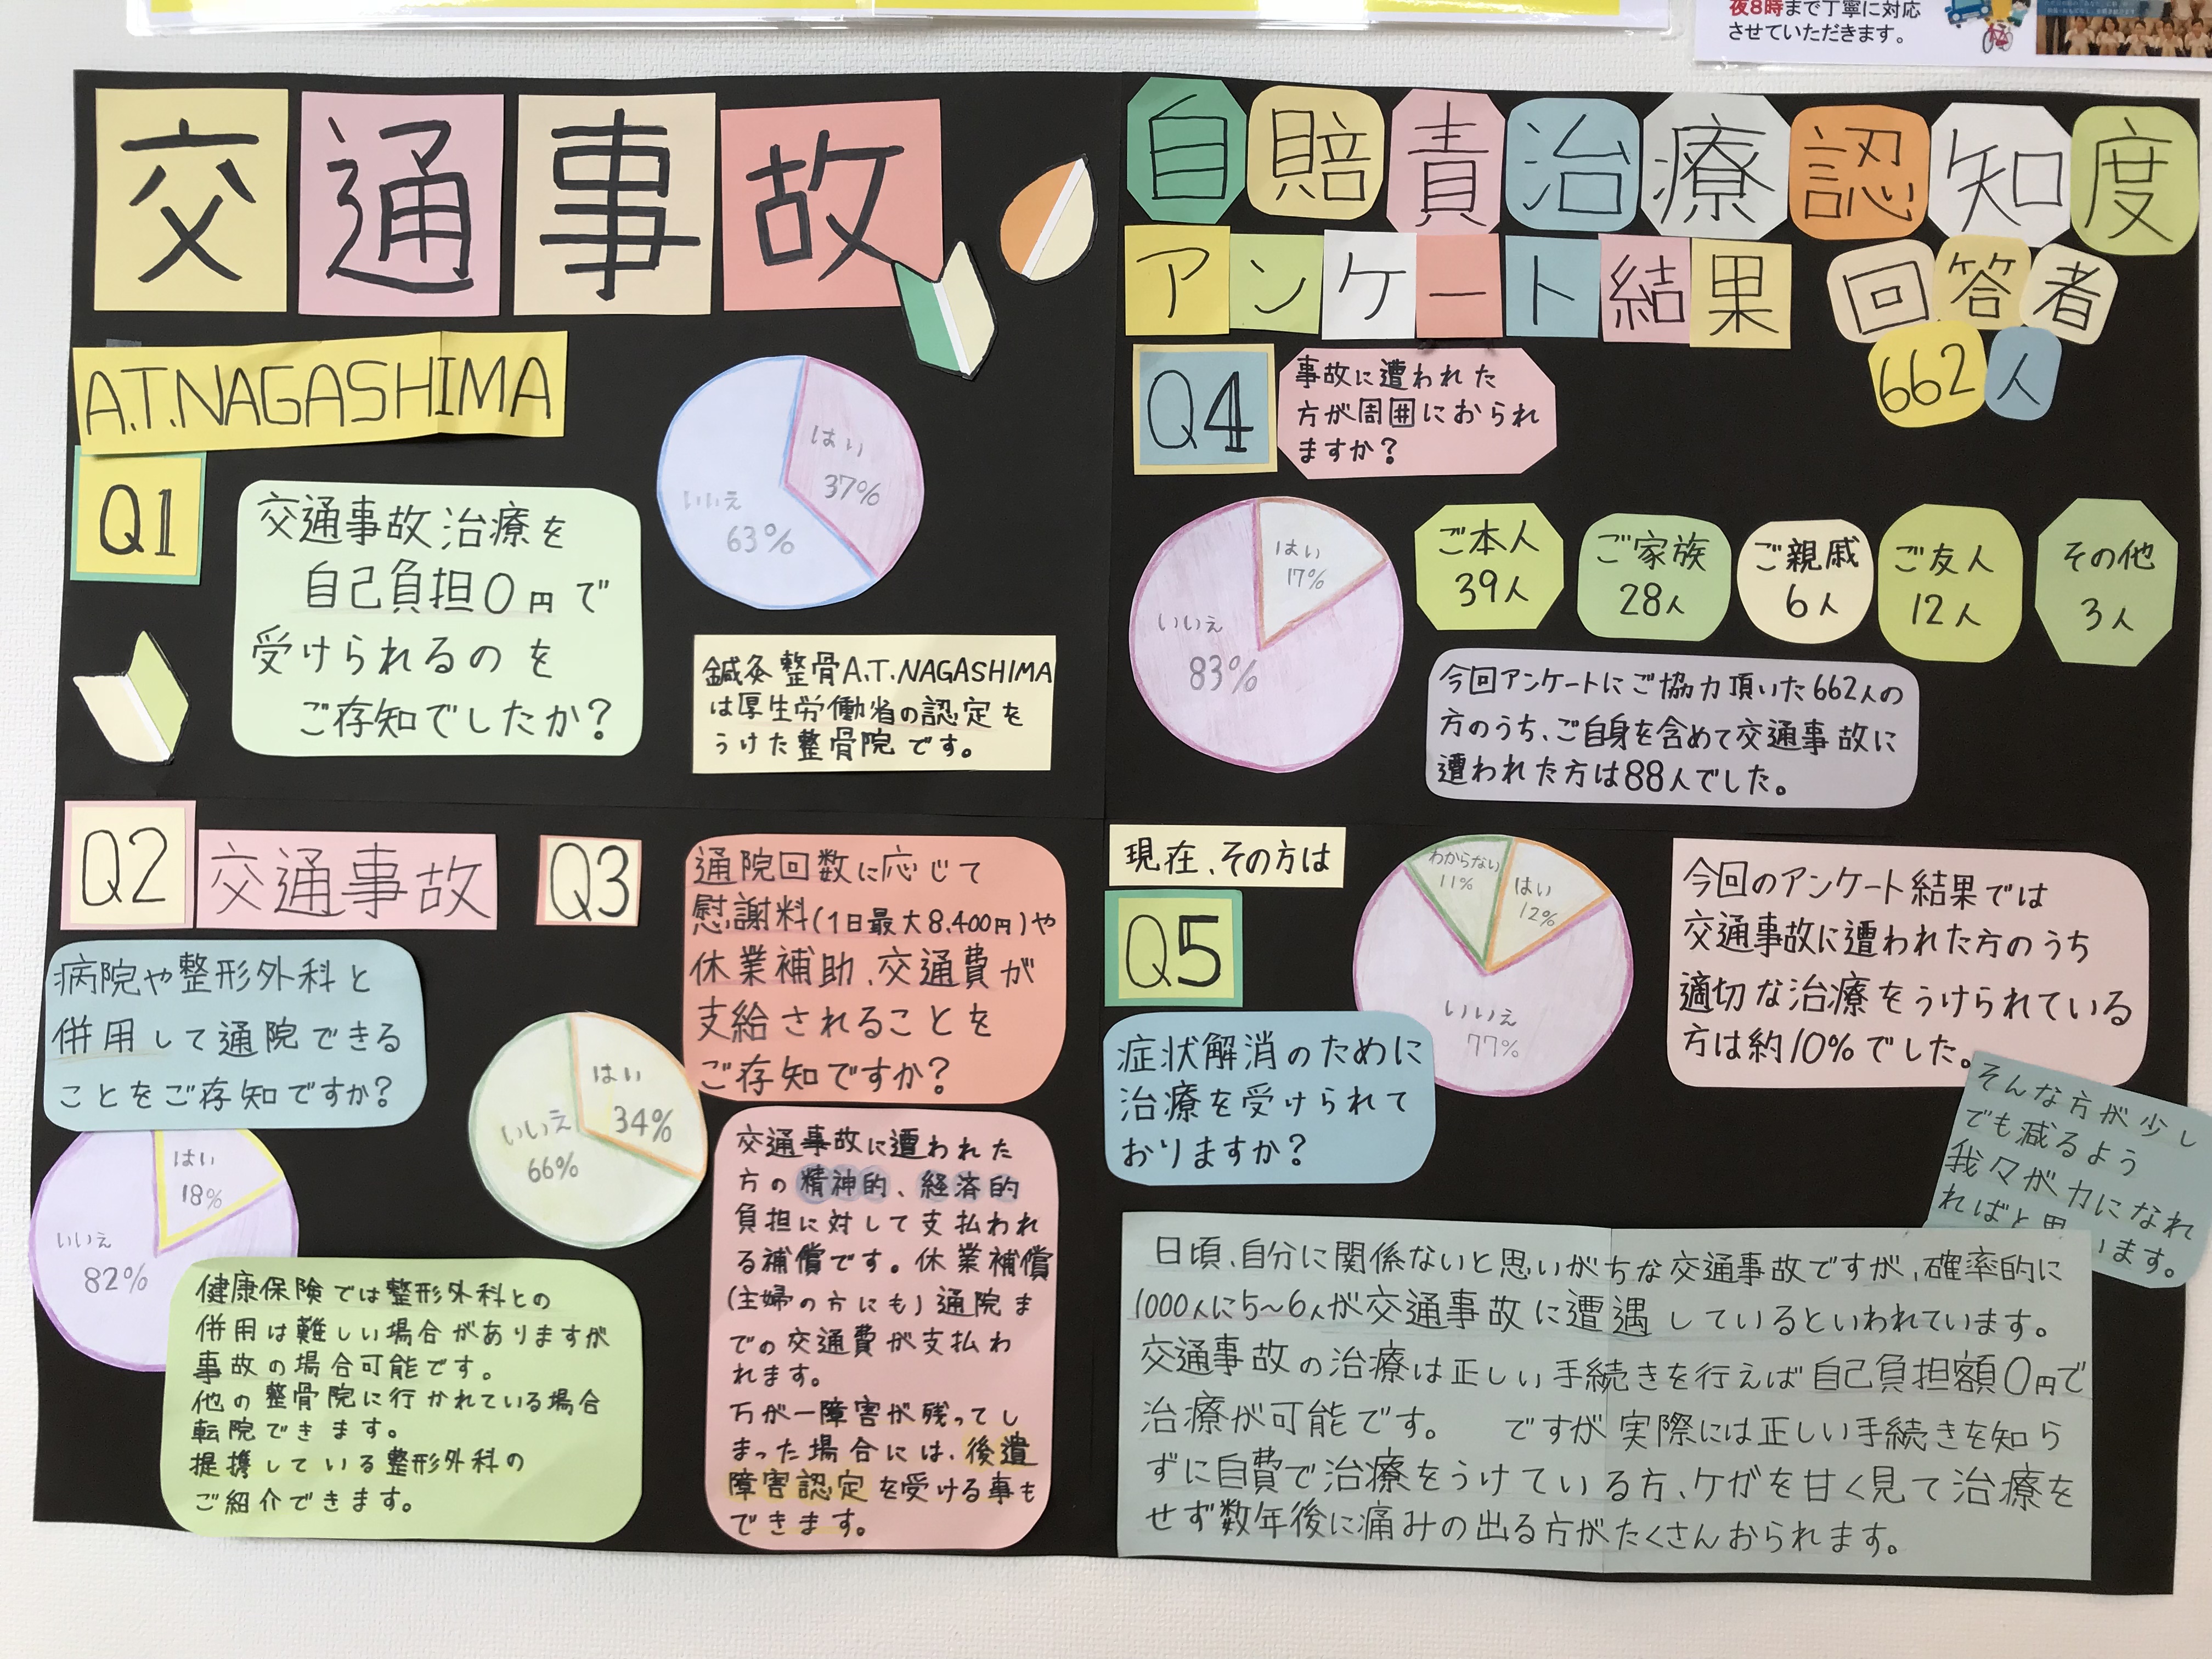 夜8時まで丁寧に対応
させていただきます。
交通事故
A.T.NAGASHIMA
Q1
交通事故治療を
自己負担0円で
受けられるのを
ご存知でしたか?
はい
37%
いいえ
63%
鍼灸整骨A.T.NAGASHIMA
は厚生労働省の認定を
うけた整骨院です。
Q2
交通事故
病院や整形外科と
併用して通院できる
ことをご存知ですか?
はい
18%
いいえ
82%
健康保険では整形外科との
併用は難しい場合がありますが
事故の場合可能です。
他の整骨院に行かれている場合
転院できます。
提携している整形外科の
ご紹介できます。
Q3
通院回数に応じて
慰謝料(1日最大8,400円)や
休業補助、交通費が
支給されることを
ご存知ですか?
はい
34%
いいえ
66%
交通事故に遭われた
方の精神的、経済的
負担に対して支払われ
る補償です。休業補償
(主婦の方にも)通院ま
での交通費が支払わ
れます。
万が一障害が残ってし
まった場合には、後遺
障害認定を受ける事も
できます。
自賠責治療認知度
アンケート結果
回答者
662人
Q4
事故に遭われた
方が周囲におられ
ますか?
はい
17%
いいえ
83%
ご本人
39人
ご家族
28人
ご親戚
6人
ご友人
12人
その他
3人
今回アンケートにご協力頂いた662人の
方のうち、ご自身を含めて交通事故に
遭われた方は88人でした。
現在、その方は
Q5
症状解消のために
治療を受けられて
おりますか?
わからない
11%
はい
12%
いいえ
77%
今回のアンケート結果では
交通事故に遭われた方のうち
適切な治療をうけられている
方は約10%でした。
そんな方が少し
でも減るよう
我々が力になれ
ればと思います。
日頃、自分に関係ないと思いがちな交通事故ですが、確率的に
1000人に5~6人が交通事故に遭遇しているといわれています。
交通事故の治療は正しい手続きを行えば自己負担額0円で
治療が可能です。 ですが実際には正しい手続きを知ら
ずに自費で治療をうけている方、ケガを甘く見て治療を
せず数年後に痛みの出る方がたくさんおられます。